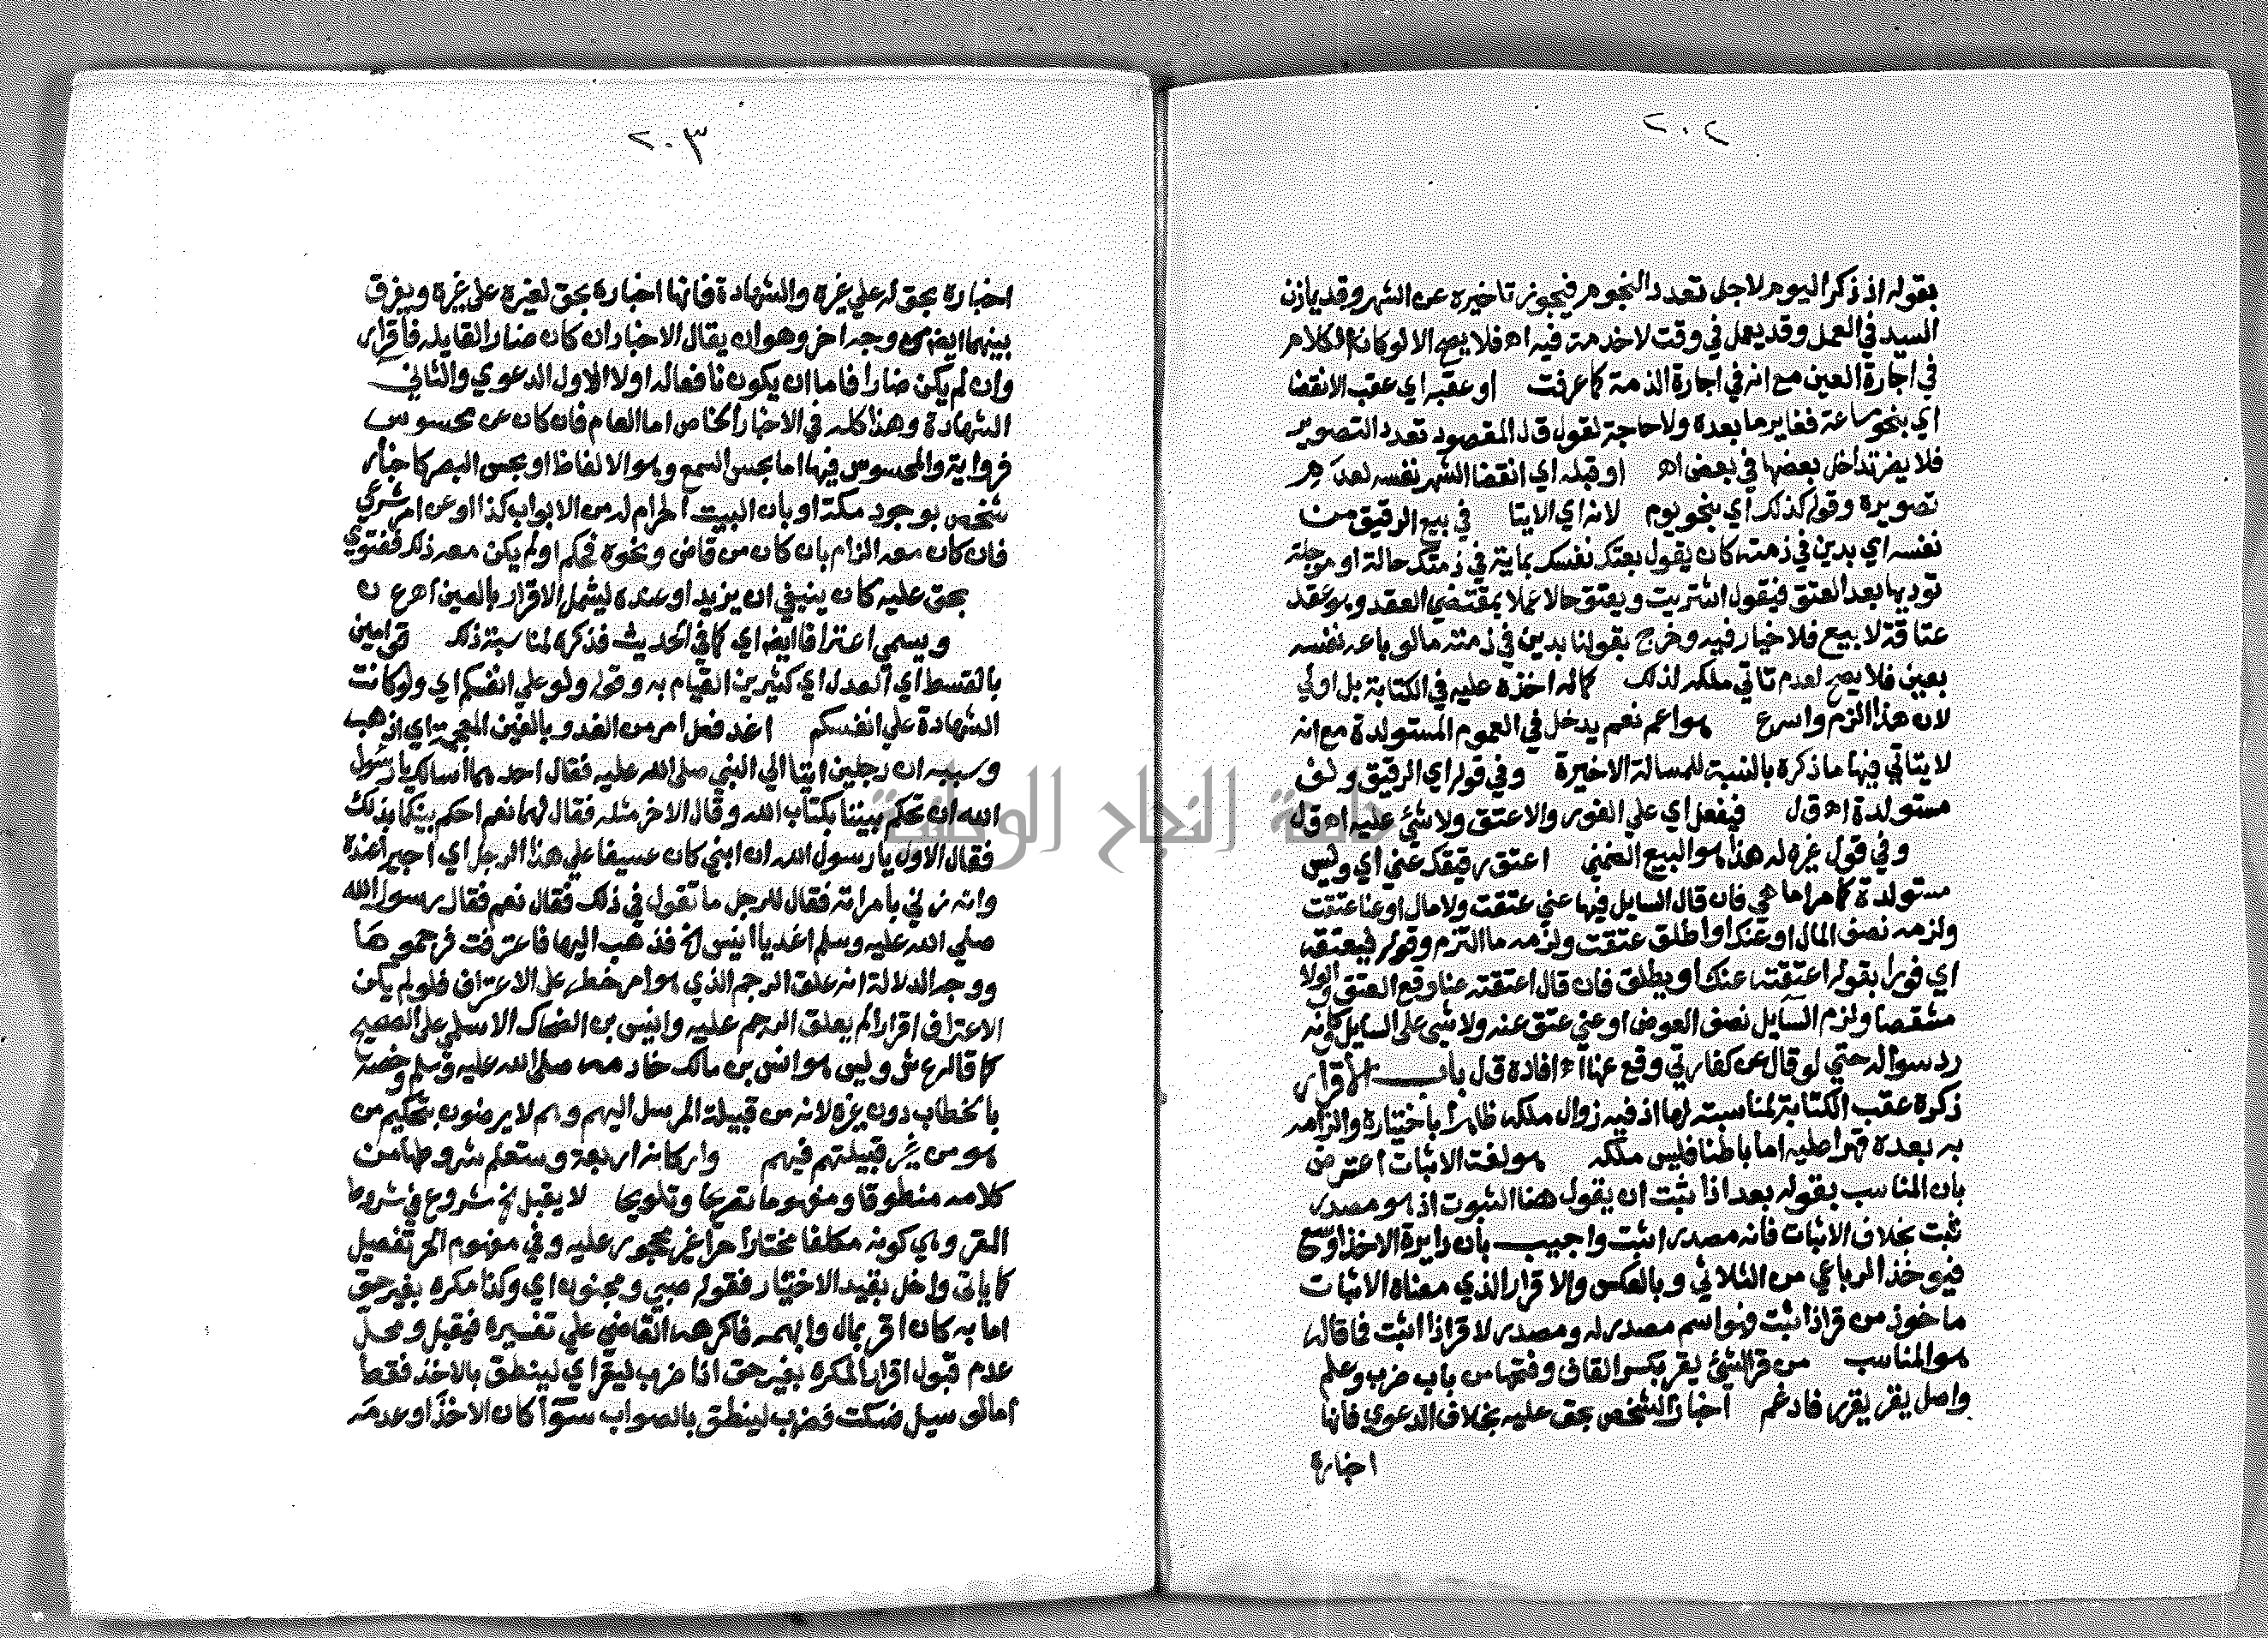 ٢٠٢
بقوله اذ ذكر اليوم لاجل تعدد النجوم فيجوز تاخيره عن الشهر وقد ياذن
السيد في العمل وقد يعمل في وقت لا خدمة فيه اه فلا يصح الا لو كان الكلام
في اجارة العين مع انه في اجارة الذمة كما عرفت او عقبه اي عقب الانقضا
اي بنحو ساعة فغاير ما بعده ولا حاجة لقول ق ل المقصود تعدد التصوير
فلا يضر تداخل بعضها في بعض اه او قبله اي انقضا الشهر نفسه لعدم
تصويره وقوله كذلك اي بنحو يوم لانه اي الايتا في بيع الرقيق من
نفسه اي بدين في ذمته كان يقول بعتك نفسك بماية في ذمتك حالة او موجلة
توديها بعد العتق فيقول اشتريت ويعتق حالا عملا بمقتضي العقد وهو عقد
عتاقة لا بيع فلا خيار فيه وخرج بقولنا بدين في ذمته ما لو باعه نفسه
بعين فلا يصح لعدم تاتي ملكه لذلك كماله اخذه عليه في الكتابة بل اولي
لان هذا الزم واسرع هو اعم نعم يدخل في العموم المستولدة مع انه
لا يتاتي فيها ما ذكره بالنسبة للمسالة الاخيرة وفي قوله اي الرقيق ولف
مستولدة اه ق ل فيفعل اي علي الفور والا عتق ولا شئ عليه اه ق ل
وفي قول غيره له هذا هو البيع الضمني اعتق رقيقك عني اي وليس
مستولدة كما مر اما هي فان قال السايل فيها عني عتقت ولا مال او عنا عتقت
ولزمه نصف المال او عنك او اطلق عتقت ولزمه ما التزم وقوله فيعتقه
اي فورا بقوله اعتقته عنك او يطلق فان قال اعتقته عنا وقع العتق والولا
مشقصا ولزم السايل نصف العوض او عني عتق عنه ولا شي علي السايل لانه
رد سواله حتي لو قال عن كفارتي وقع عنها اه افاده ق ل باب الاقرار
ذكره عقب الكتابة لمناسبته لها اذ فيه زوال ملكه ظاهرا باختياره والزامه
به بعده قهرا عليه اما باطنا فليس ملكه هو لغة الاثبات اعترض
بان المناسب بقوله بعد اذا ثبت ان يقول هنا الثبوت اذ هو مصدر
ثبت بخلاف الاثبات فانه مصدر اثبت واجيب بان دايرة الاخذ اوسع
فيوخذ الرباعي من الثلاثي وبالعكس والاقرار الذي معناه الاثبات
ماخوذ من قر اذا ثبت فهو اسم مصدر له ومصدر لاقر اذا اثبت فما قاله
هو المناسب من قر الشئ يقر بكسر القاف وفتحها من باب ضرب وعلم
واصل يقر يقرر فادغم اخبار الشخص بحق عليه بخلاف الدعوي فانها
اخباره
٢٠٣
اخباره بحق له علي غيره والشهادة فانها اخباره بحق لغيره علي غيره ويفرق
بينهما ايضا من وجه اخر وهو ان يقال الاخبار ان كان ضارا لقايله فاقرار
وان لم يكن ضارا فاما ان يكون نافعا له اولا الاول الدعوي والثاني
الشهادة وهذا كله في الاخبار الخاص اما العام فان كان عن محسوس
فرواية والمحسوس فيها اما بحس السمع وهو الالفاظ او بحس البصر كاخبار
شخص بوجود مكة او بان البيت الحرام له من الابواب كذا او عن امر شرعي
فان كان معه الزام بان كان من قاض ونحوه فحكم او لم يكن معه ذلك ففتوي
بحق عليه كان ينبغي ان يزيد او عنده ليشمل الاقرار بالعين اه ع ن
ويسمي اعترافا ايضا اي كما في الحديث فذكره لمناسبة ذلك قوامين
بالقسط اي العدل اي كثيرين القيام به وقوله ولو علي انفسكم اي ولو كانت
الشهادة علي انفسكم اغد فعل امر من الغدو بالغين المعجمة اي اذهب
وسببه ان رجلين اتيا الي النبي صلي الله عليه فقال احدهما اسالك يا رسول
الله ان تحكم بيننا بكتاب الله وقال الاخر مثله فقال لهما نعم احكم بينكما بذلك
فقال الاول يا رسول الله ان ابني كان عسيفا علي هذا الرجل اي اجيرا عنده
وانه زني بامراته فقال للرجل ما تقول في ذلك فقال نعم فقال رسول الله
صلي الله عليه وسلم اغد يا انيس الخ فذهب اليها فاعترفت فرجموها
ووجه الدلالة انه علق الرجم الذي هو امر خطر علي الاعتراف فلو لم يكن
الاعتراف اقرارا لم يعلق الرجم عليه وانيس بن الضحاك الاسلمي علي الصحيح
كما قاله ع ش وليس هو انس بن مالك خادمه صلي الله عليه وسلم وخصه
بالخطاب دون غيره لانه من قبيلة المرسل اليهم وهم لا يرضون بتحكيم من
هو من غير قبيلتهم فيهم واركانه اربعة وستعلم شروطها من
كلامه منطوقا ومفهوما تصريحا وتلويحا لا يقبل الخ شروع في شروط
المقر وهي كونه مكلفا مختارا حرا غير محجور عليه وفي مفهوم الحر تفصيل
كما ياتي واخل بقيد الاختيار فقوله صبي ومجنون اي وكذا مكره بغير حق
اما به كان اقر بمال وابهمه فاكرهه القاضي علي تفسيره فيقبل ومحل
عدم قبول اقرار المكره بغير حق اذا ضرب ليقر اي لينطق بالاخذ فقط
اما لو سيل فسكت فضرب لينطق بالصواب سوا كان الاخذ او عدمه
جامعة النجاح الوطنية